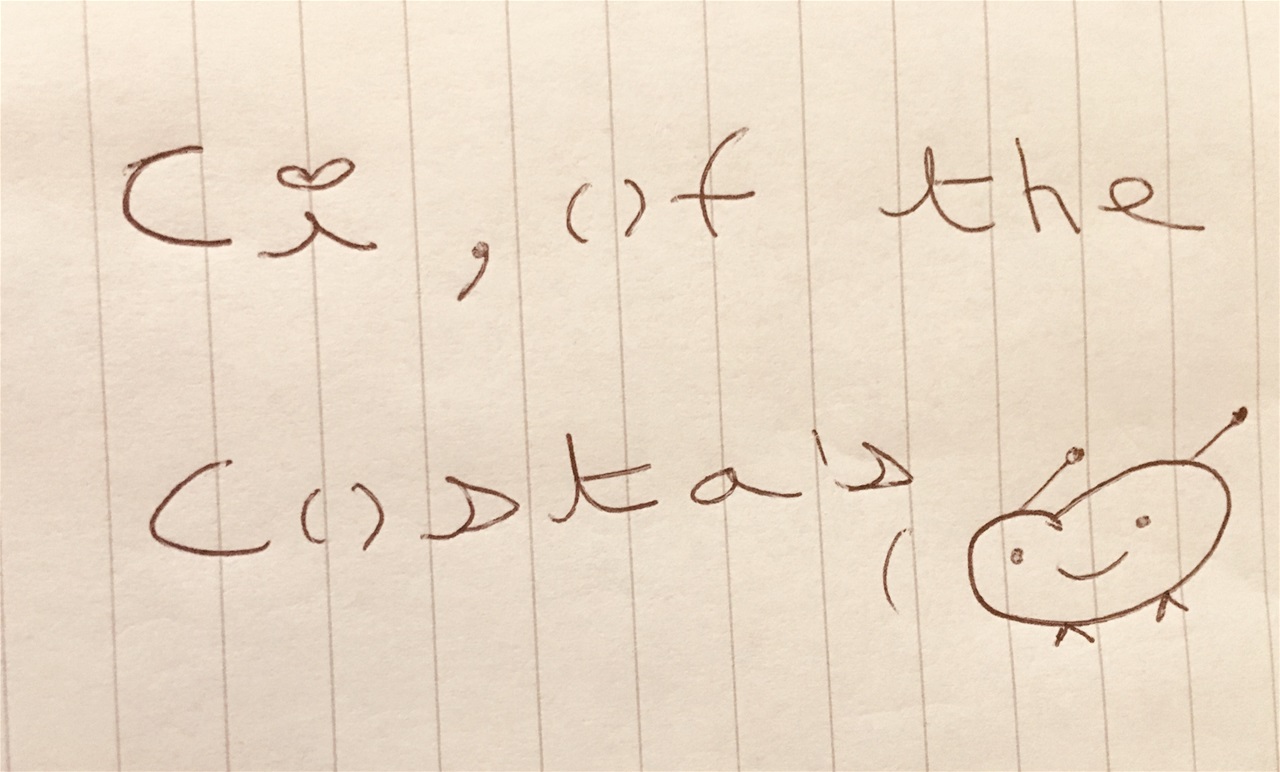 Ci, of the
Costa's